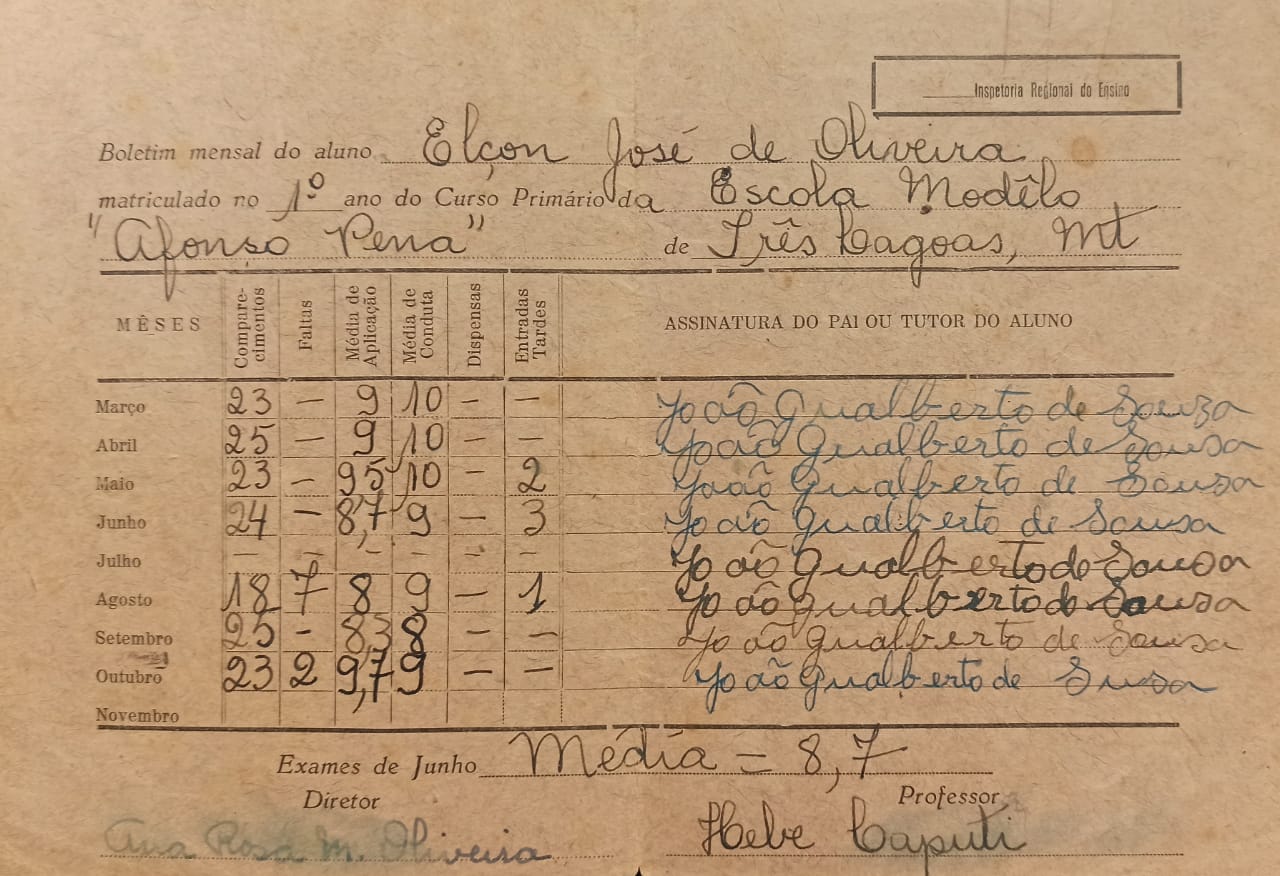 Inspetoria Regional do Ensino
Boletim mensal do aluno Elçon José de Oliveira
matriculado no 1º ano do Curso Primário da Escola Modêlo
"Afonso Pena" de Três Lagoas, Mt
MÊSES Compare-cimentos Faltas Média de Aplicação Média de Conduta Dispensas Entradas Tardes ASSINATURA DO PAI OU TUTOR DO ALUNO
Março 23 — 9 10 — — João Gualberto de Souza
Abril 25 — 9 10 — — João Gualberto de Sousa
Maio 23 — 95 10 — 2 João Gualberto de Sousa
Junho 24 — 8,7 9 — 3 João Gualberto de Sousa
Julho — — — — — — João Gualberto de Sousa
Agosto 18 7 8 9 — 1 João Gualberto de Sousa
Setembro 25 - 8,3 8 — — João Gualberto de Sousa
Outubro 23 2 9,7 9 — — João Gualberto de Susa
Novembro
Exames de Junho Média = 8,7
Diretor Professor
Ana Rosa M. Oliveira Hebe Caputi